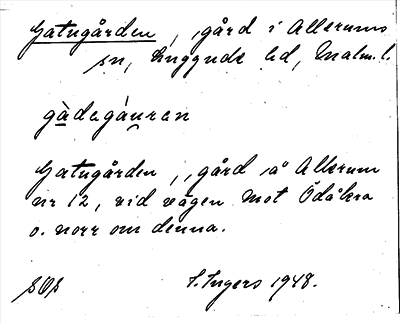 Gatugården, gård i Allerums
sn, Luggude hd, Malm. l.
gàdegáuren
Gatugården, gård å Allerum
nr 12, vid vägen mot Ödåkra
o. norr om denna.
I. Ingers 1948.